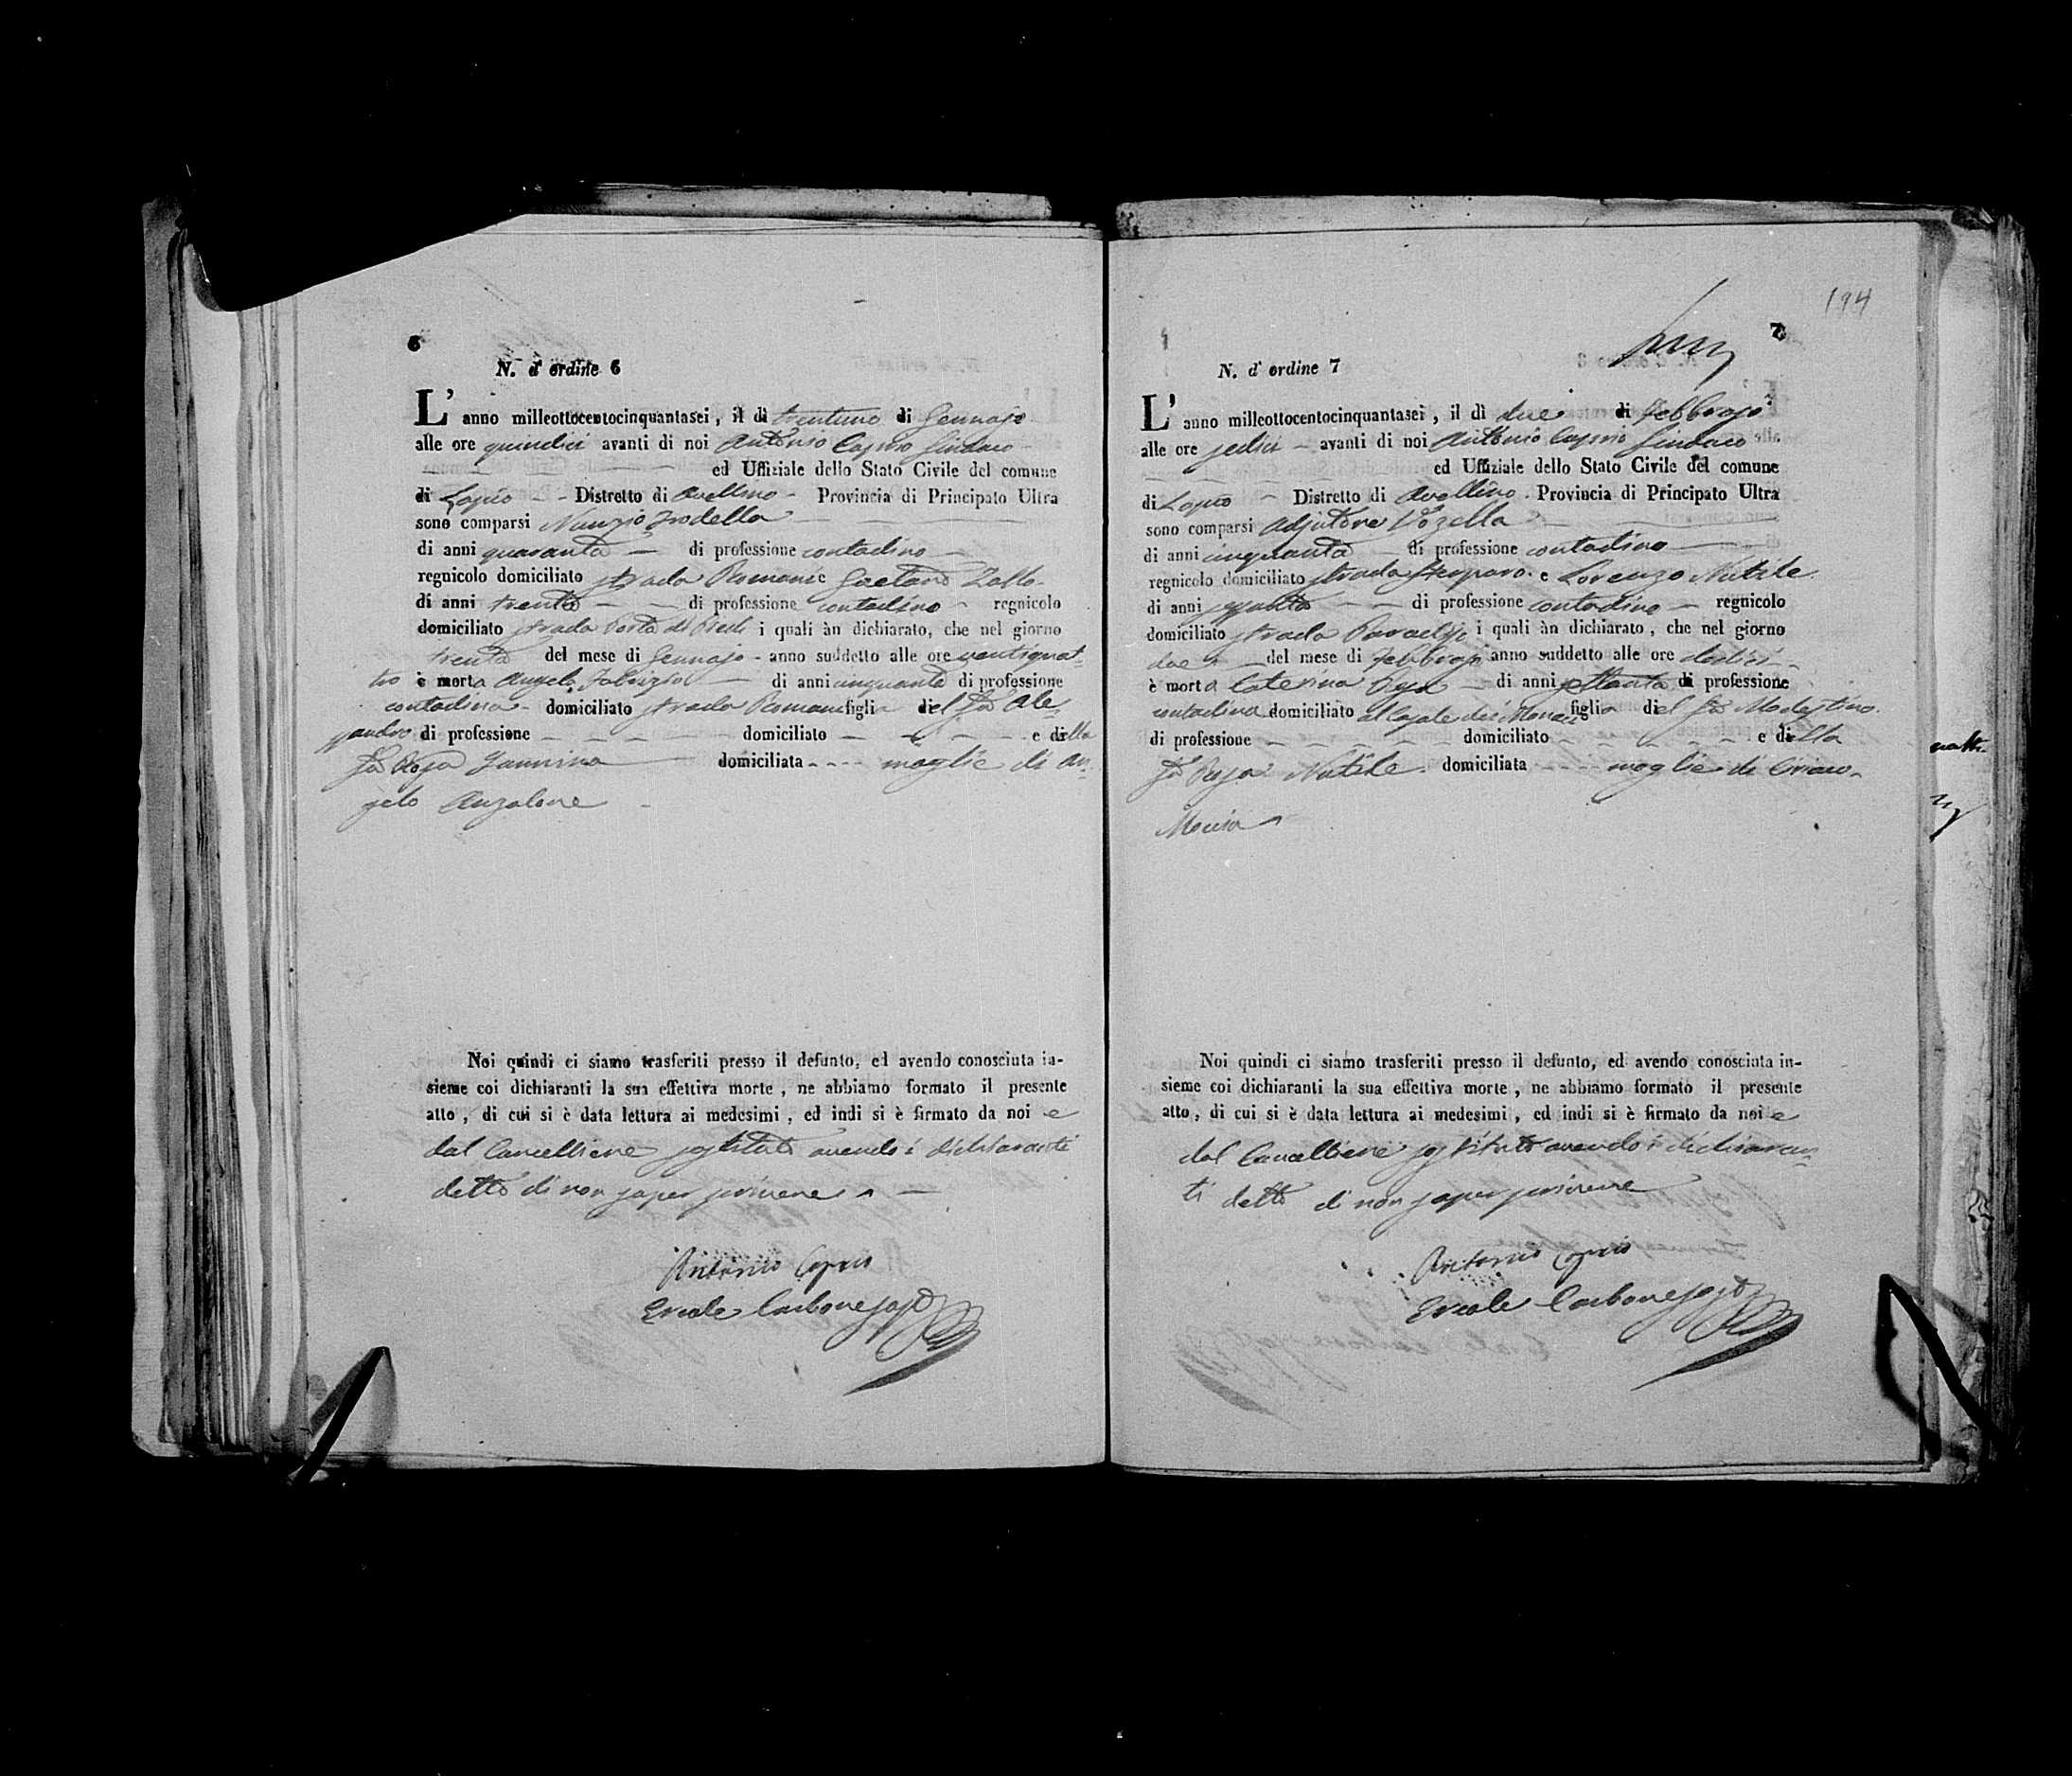 6
N. d' ordine 6
L' anno milleottocentocinquantasei, il dì trentuno di Gennajo
alle ore quindici avanti di noi Antonio Caprio Sindaco
ed Uffiziale dello Stato Civile del comune
di Lapio - - Distretto di Avellino - Provincia di Principato Ultra
sono comparsi Nunzio
di anni quaranta — di professione contadino —
regnicolo domiciliato strada Romani e Gaetano Zollo
di anni trenta — — di professione contadino - regnicolo
domiciliato strada Porta di i quali àn dichiarato, che nel giorno
trenta del mese di Gennajo - anno suddetto alle ore ventiquat-
tro è morta Angela Fabrizio — di anni cinquanta di professione
contadina - domiciliato strada Romani figlia del fu Ales-
sandro di professione — — — domiciliato — — — e della
fu Rosa Iannino domiciliata - - - - moglie di An-
gelo Anzalone
Noi quindi ci siamo trasferiti presso il defunto, ed avendo conosciuta in-
sieme coi dichiaranti la sua effettiva morte, ne abbiamo formato il presente
atto, di cui si è data lettura ai medesimi, ed indi si è firmato da noi e
dal Cancelliere sostituto avendo i dichiaranti
detto di non saper scrivere
Antonio Caprio
Ercole Carbone sosto
194
7
N. d' ordine 7
L' anno milleottocentocinquantasei, il dì due di Febbrajo
alle ore sedici - avanti di noi Antonio Caprio Sindaco
ed Uffiziale dello Stato Civile del comune
di Lapio - Distretto di Avellino. Provincia di Principato Ultra
sono comparsi Adjutore Vozella
di anni cinquanta — di professione contadino —
regnicolo domiciliato strada e Lorenzo Nutile
di anni — — di professione contadino — regnicolo
domiciliato strada Paradiso i quali àn dichiarato, che nel giorno
due — del mese di Febbrajo anno suddetto alle ore dodici
è morta Caterina — di anni settanta di professione
contadina domiciliato al Casale dei Monaci figlia del fu Modestino
di professione — — — domiciliato — — — e della
fu Rosa Nutile. domiciliata - - - moglie di Ciriaco
Noi quindi ci siamo trasferiti presso il defunto, ed avendo conosciuta in-
sieme coi dichiaranti la sua effettiva morte, ne abbiamo formato il presente
atto, di cui si è data lettura ai medesimi, ed indi si è firmato da noi e
dal Cancelliere sostituto avendo i dichiaran-
ti detto di non saper scrivere
Antonio Caprio
Ercole Carbone sosto